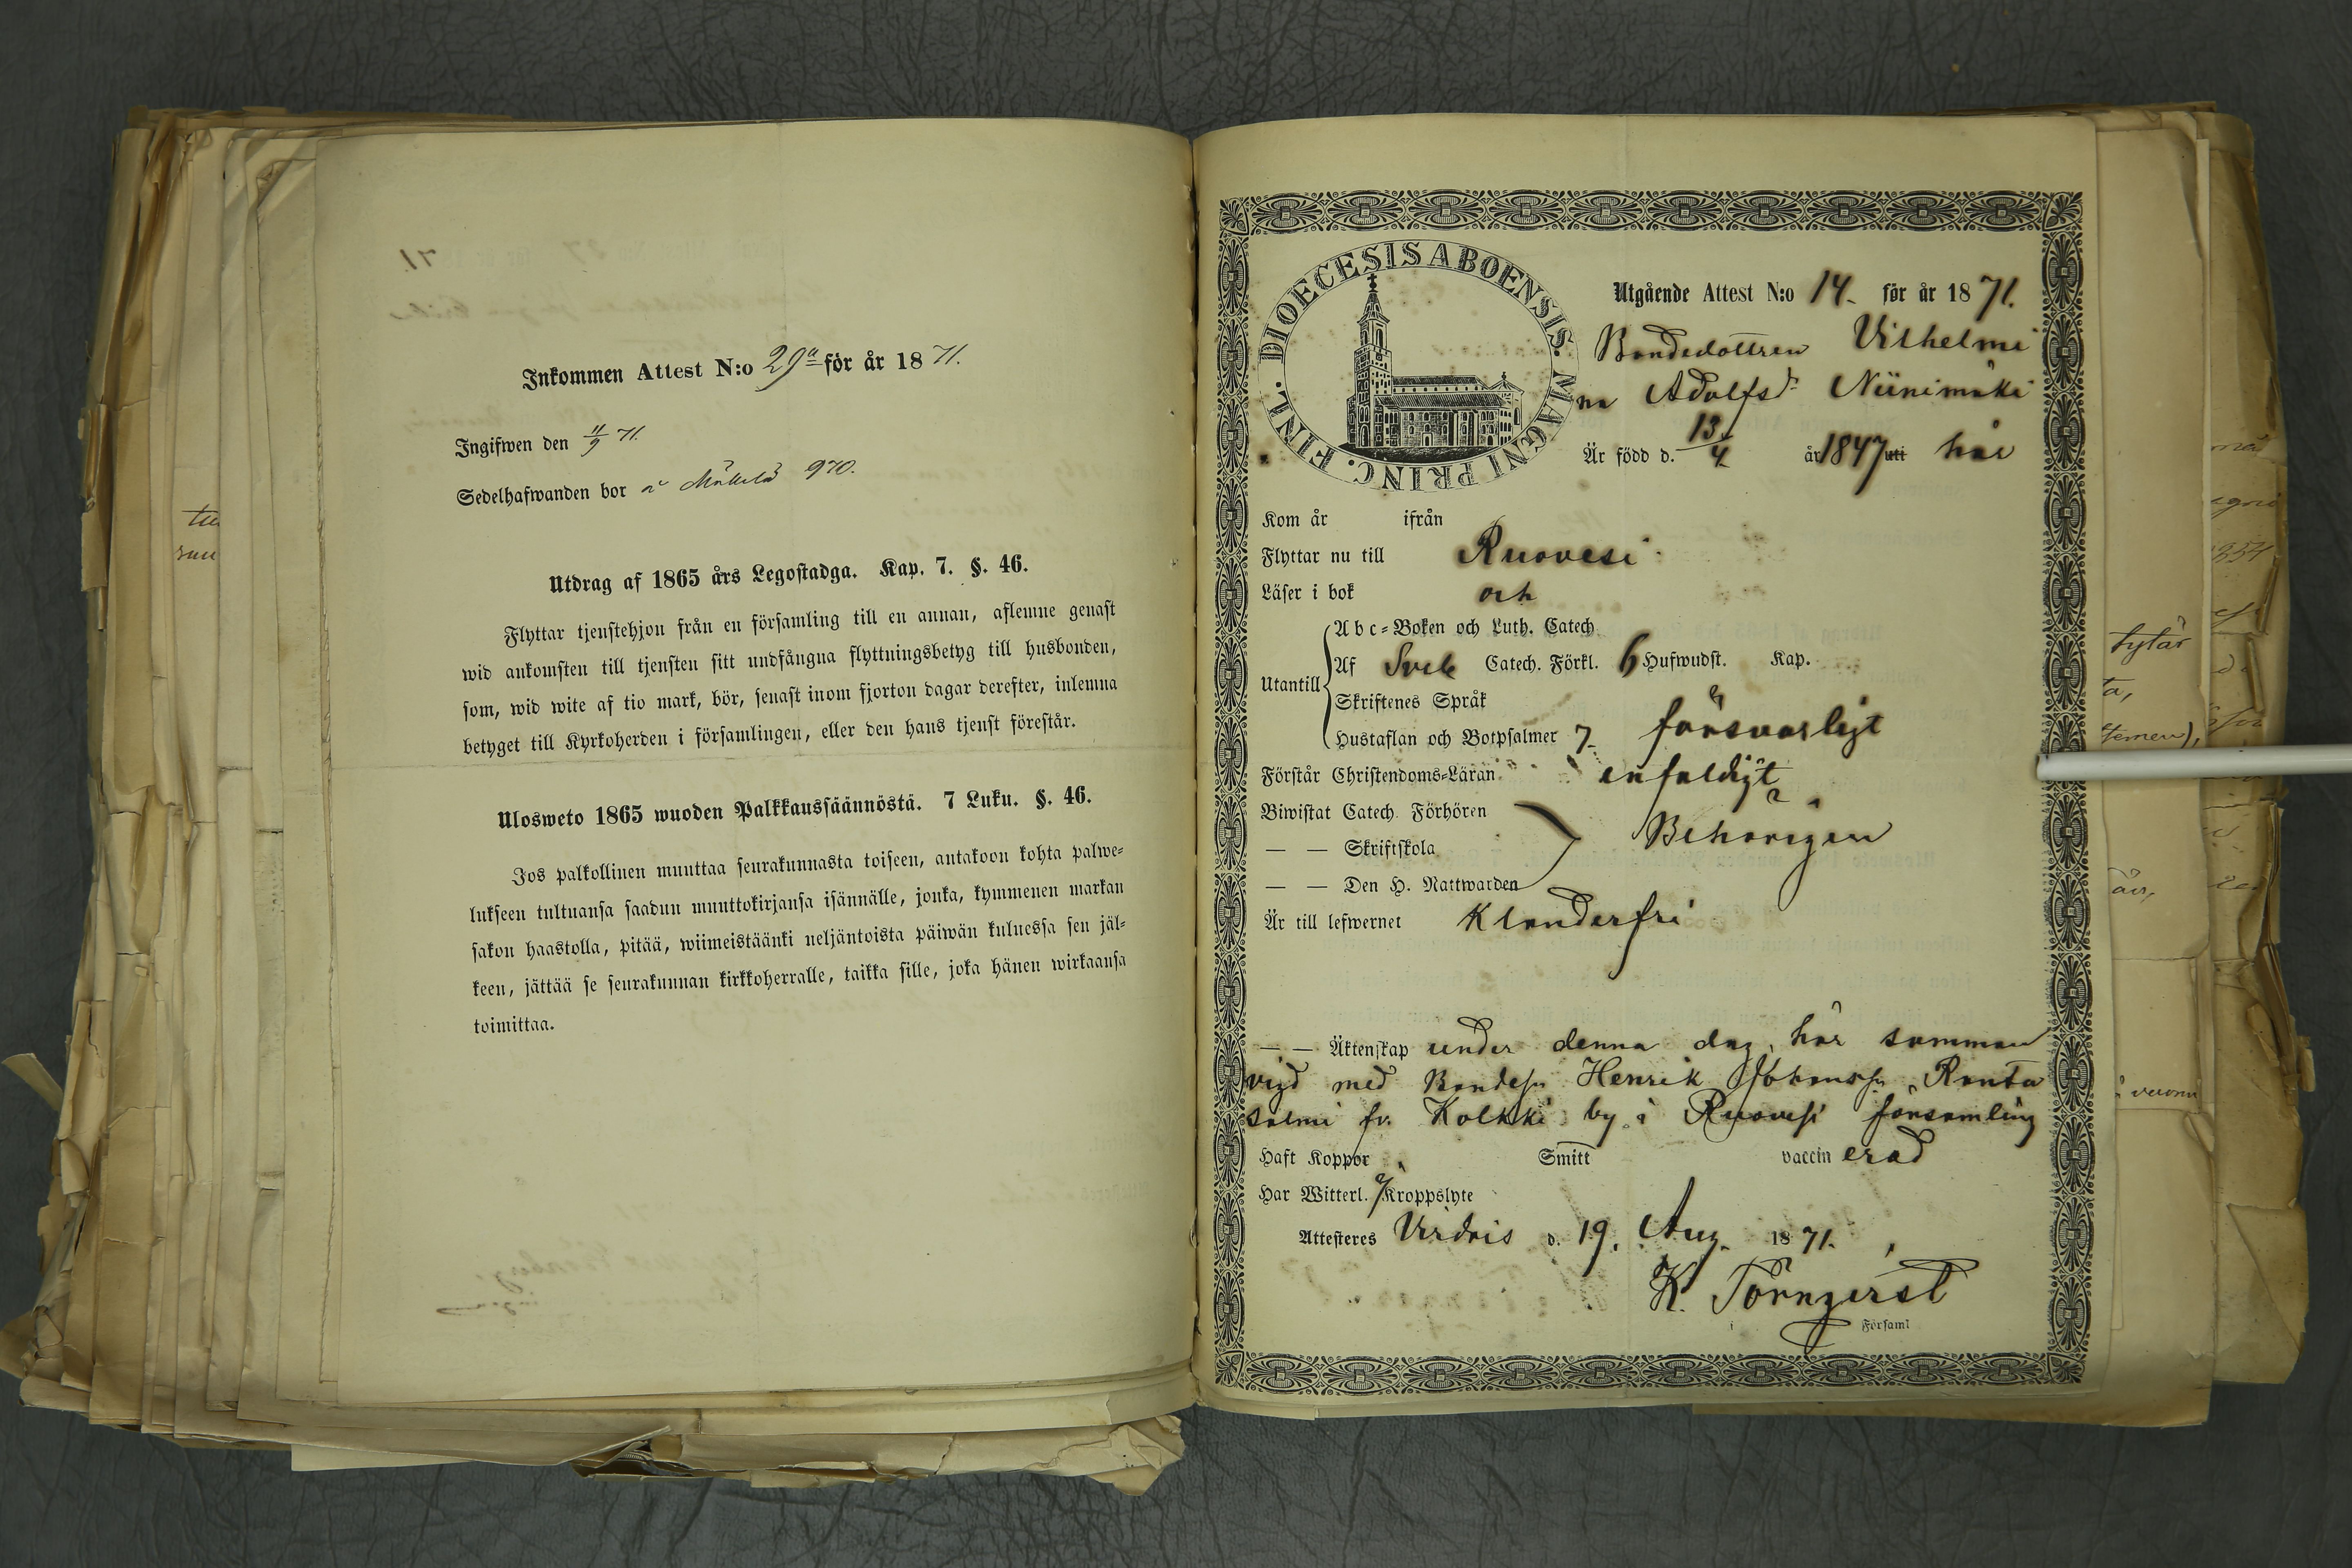 Inkommen Attest N:o 29a för år 1871.
Ingifwen den 11/9 71.
Sedelhafwanden bor å Mäkelä 970.
Utdrag af 1865 års Legostadga. Kap. 7. §. 46.
Flyttar tjenstehjon från en församling till en annan, aflemne genast
wid ankomsten till tjensten sitt undfångna flyttningsbetyg till husbonden,
som, wid wite af tio mark, bör, senast inom fjorton dagar derefter, inlemna
betyget till Kyrkoherden i församlingen, eller den hans tjenst förestår.
Ulosweto 1865 wuoden Palkkaussäännöstä. 7 Luku. §. 46.
Jos palkollinen muuttaa seurakunnasta toiseen, antakoon kohta palwe-
lukseen tultuansa saadun muuttokirjansa isännälle, jonka, kymmenen markan
sakon haastolla, pitää, wiimeistäänki neljäntoista päiwän kuluessa sen jäl-
keen, jättää se seurakunnan kirkkoherralle, taikka sille, joka hänen wirkaansa
toimittaa.
DIOECESIS ABOENSIS. MAGNI PRINC. FINL.
Utgående Attest N:o 14. för år 1871.
Bondedottren Vilhelmi
na Adolfsdr Niinimäki
Är född d. 13/4 år 1847 uti här
Kom år ifrån
Flyttar nu till Ruovesi
Läser i bok och
Utantill
Abc-Boken och Luth. Catech.
Af Sveb Catech. Förkl. 6 Hufwudst. Kap.
Skriftenes Språk
Hustaflan och Botpsalmer 7 försvarligt
Förstår Christendoms-Läran enfaldigt
Biwistat Catech. Förhören
— — Skriftskola Behörigen
— — Den H. Nattwarden
Är till lefwernet Klanderfri
— — Äktenskap under denna dag, här samman
vigd med Bondesn Henrik Johanssn Ranta
salmi fr. Kolkki by i Ruovesi församling
Haft Koppor Smitt vaccin erad
Har Witterl. ej Kroppslyte
Attesteres Virdois d. 19. Aug. 1871.
K. Törnqvist
Församl